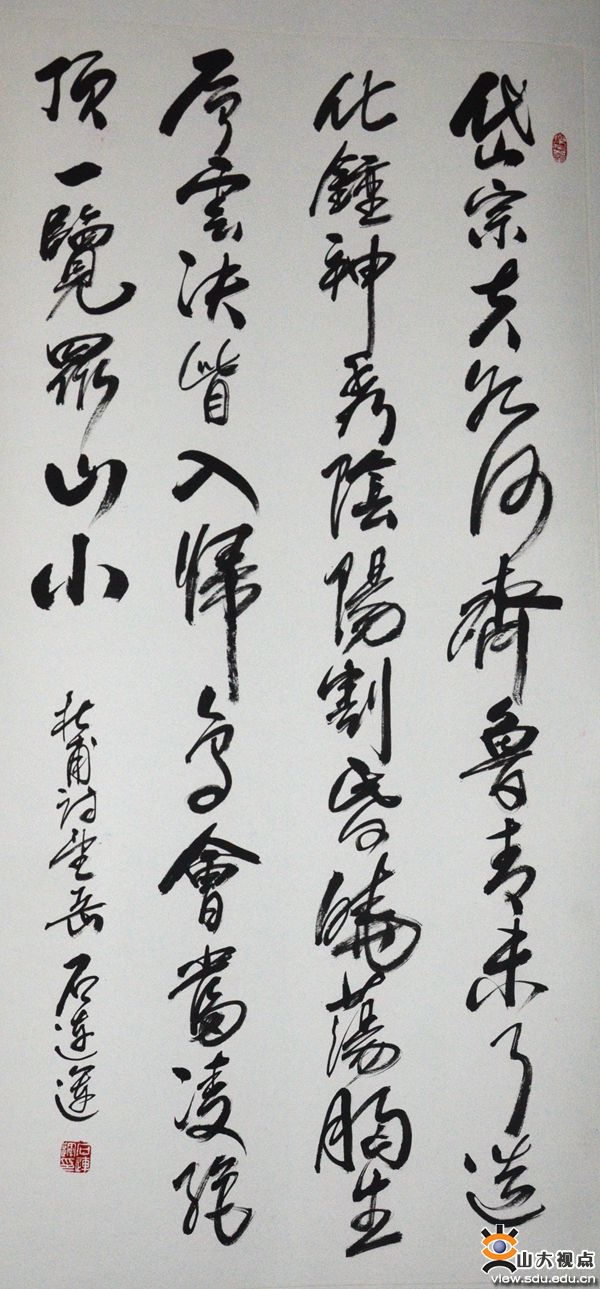 岱宗夫如何齊魯青未了造
化鍾神秀陰陽割昏曉蕩胸生
層雲決眥入歸鳥會當凌絕
頂一覽眾山小
杜甫詩望岳 石連
山大视点
view.sdu.edu.cn